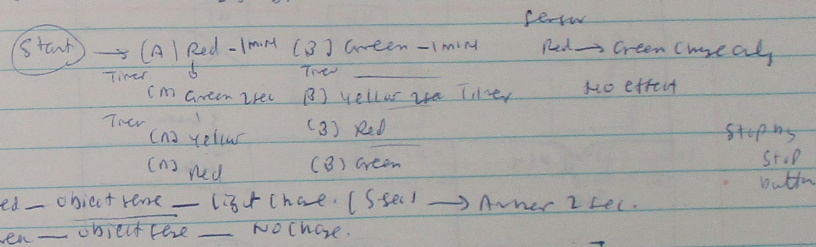 Sensor
Start → (A) Red - 1min (B) Green - 1min
Red → Green
Timer Timer
(A) Green 2sec (B) Yellow 2sec Timer
No effect
Timer
(A) Yellow (B) Red
(A) Red (B) Green
Stop by
Stop
button
ed - object sense - Light (5 sec) → 2 sec.
en - object sense - No